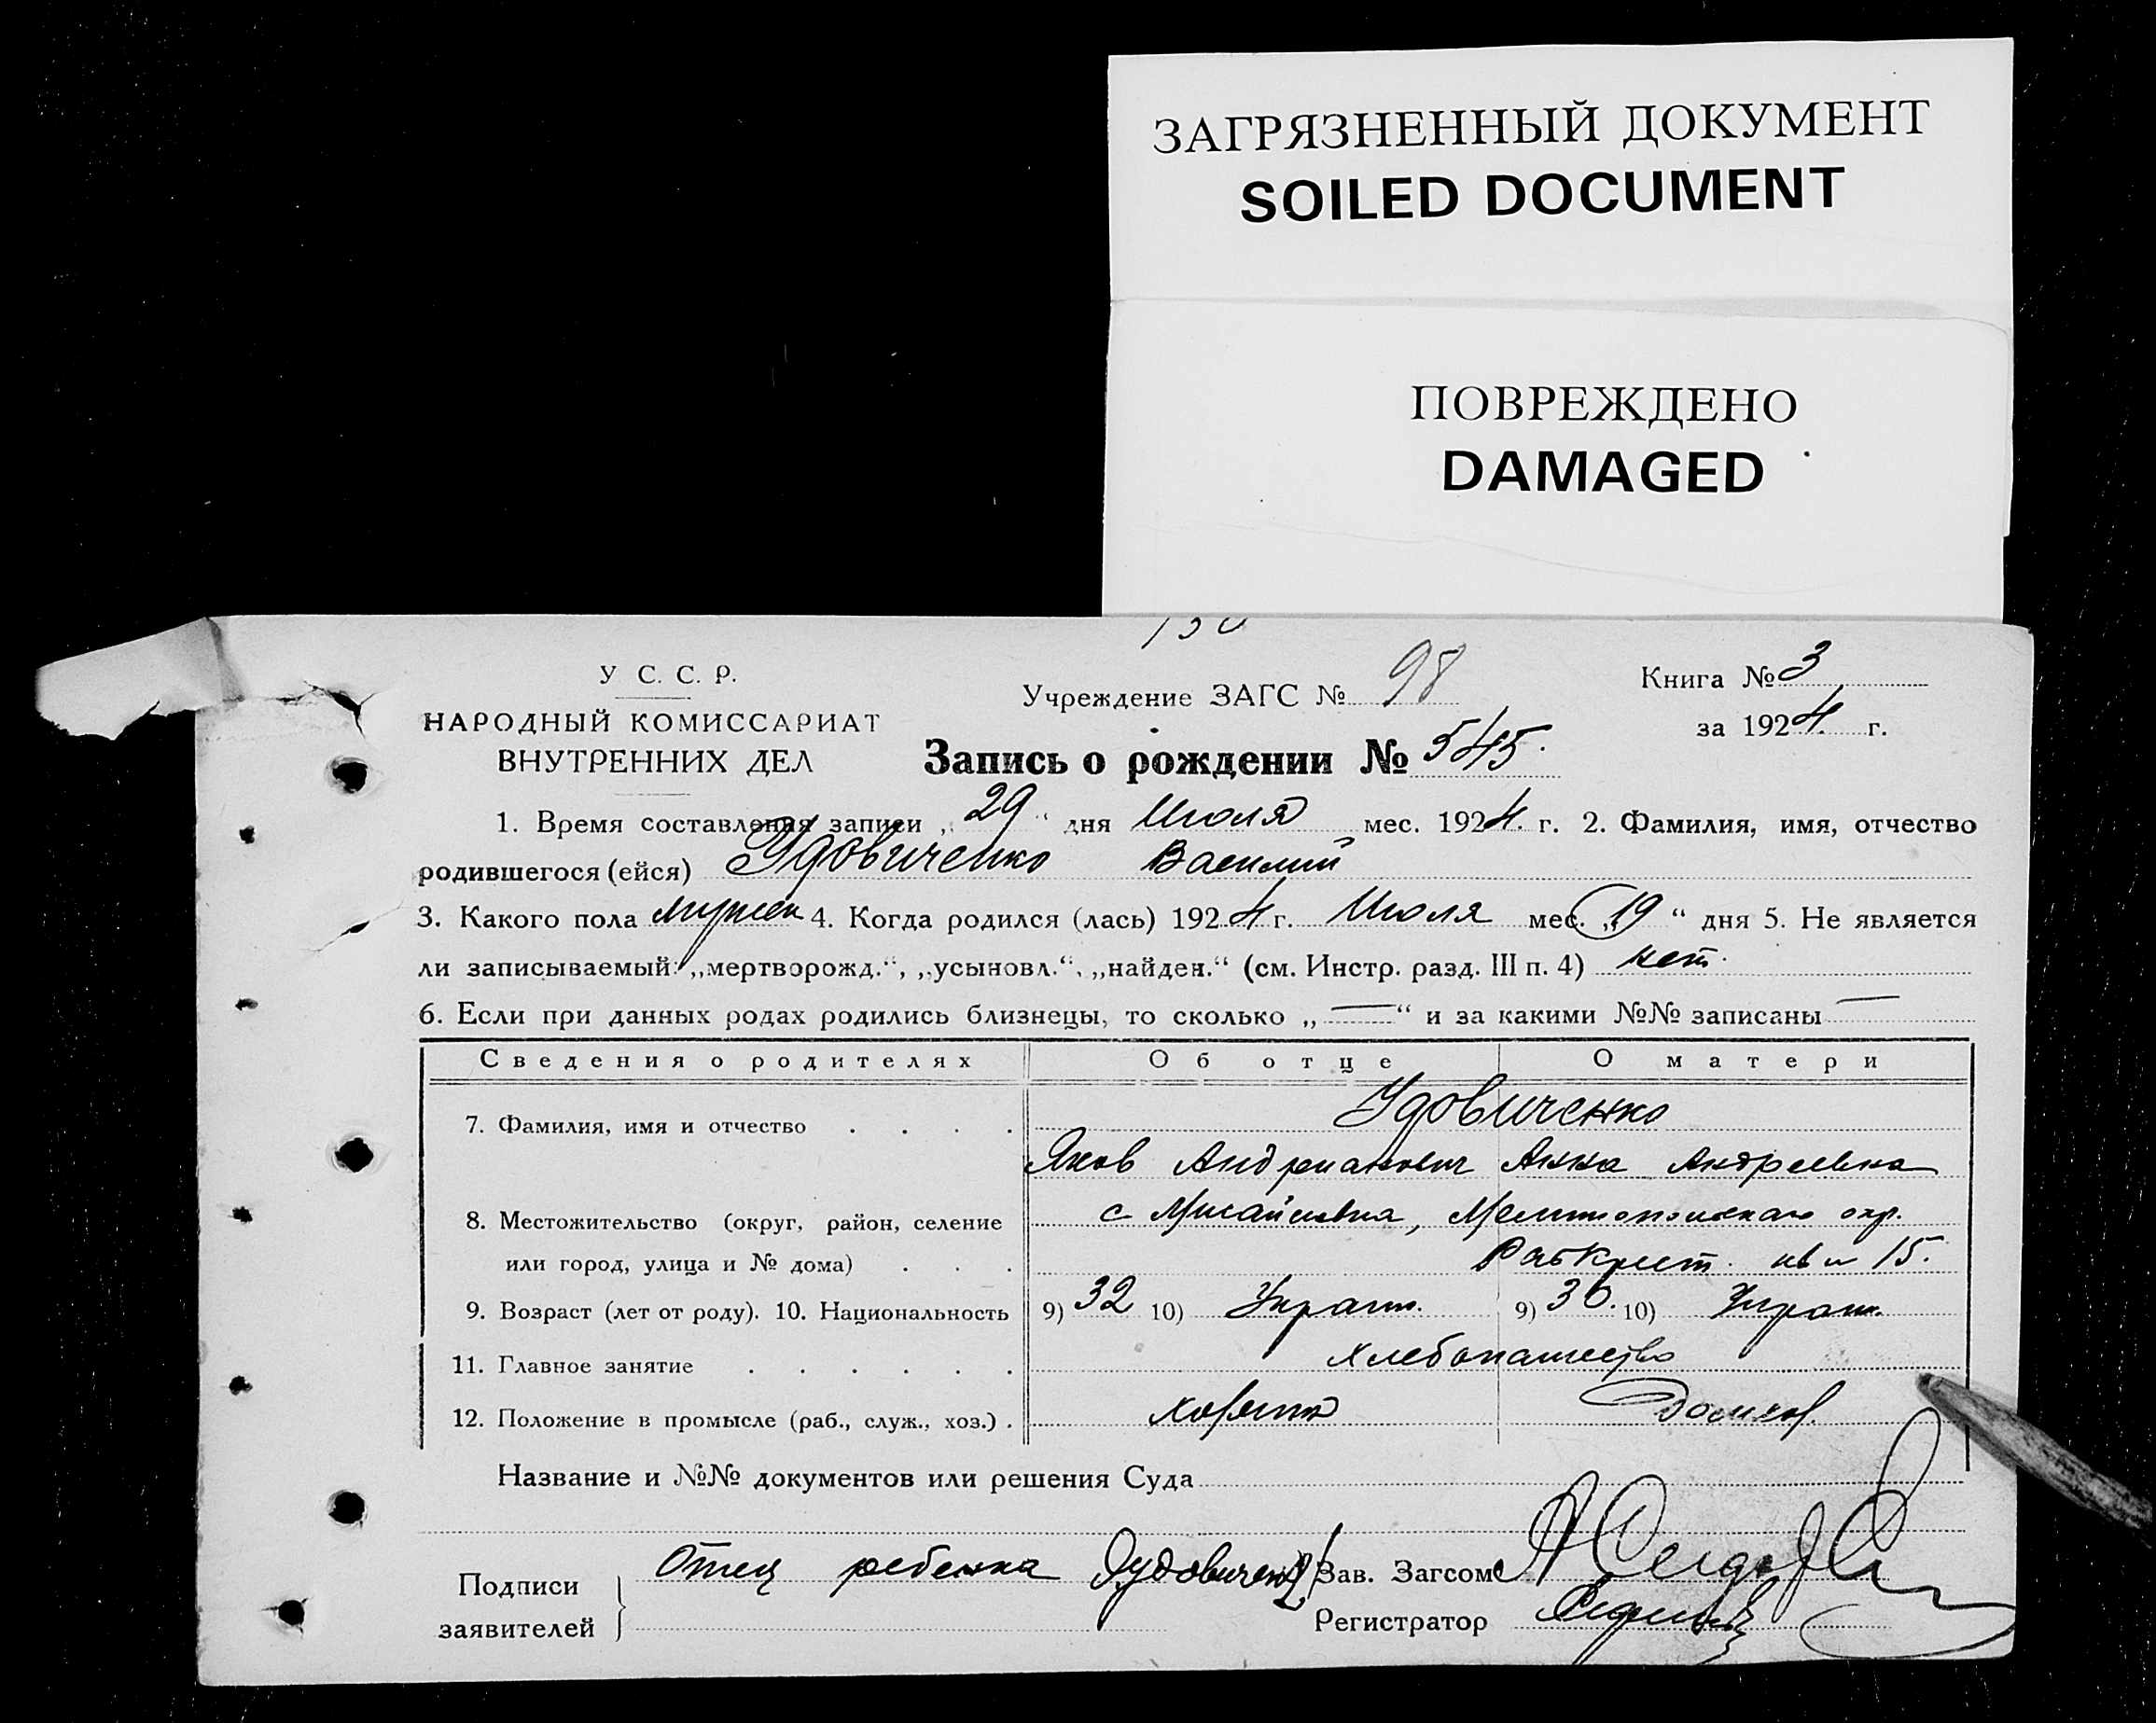 ЗАГРЯЗНЕННЫЙ ДОКУМЕНТ
SOILED DOCUMENT
ПОВРЕЖДЕНО
DAMAGED
У С. С. Р.
НАРОДНЫЙ КОМИССАРИАТ
ВНУТРЕННИХ ДЕЛ
Учреждение ЗАГС № 98
Книга № 3
за 1924 г.
Запись о рождении № 545.
1. Время составления записи „ 29 “ дня Июля мес. 1924. г. 2. Фамилия, имя, отчество
родившегося (ейся) Удовиченко Василий
3. Какого пола мужск 4. Когда родился (лась) 1924 г. Июля мес. „19 “ дня 5. Не является
ли записываемый: „мертворожд.“, „усыновл.“, „найден.“ (см. Инстр. разд. III п. 4) нет.
6. Если при данных родах родились близнецы, то сколько „ — “ и за какими №№ записаны —
Сведения о родителях Об отце О матери
7. Фамилия, имя и отчество . . . . Удовиченко
Яков Андрианович Анна Андреевна
8. Местожительство (округ, район, селение с Мисайловка, Мелитопольскаго окр.
или город, улица и № дома) . . . РабКрест. 15.
9. Возраст (лет от роду). 10. Национальность 9) 32 10) Украин. 9) 30. 10) Украин.
11. Главное занятие . . . . . . Хлебопашество
12. Положение в промысле (раб., служ., хоз.) . хозяин домхоз.
Название и №№ документов или решения Суда
Подписи заявителей Отец ребенка Зав. Загсом
Регистратор